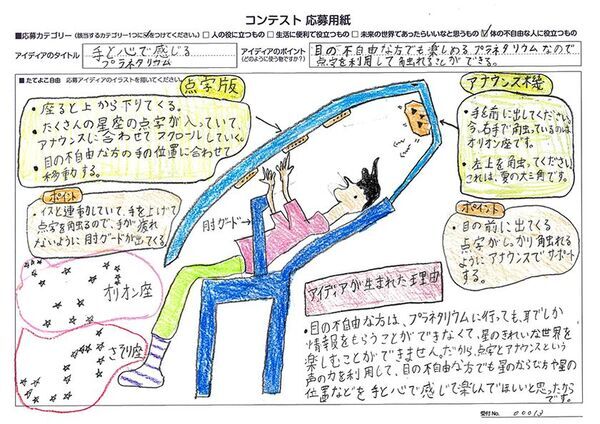 コンテスト 応募用紙
■応募カテゴリー(該当するカテゴリー1つに✓をつけてください。) □ 人の役に立つもの □ 生活に便利で役立つもの □ 未来の世界であったらいいなと思うもの ☑ 体の不自由な人に役立つもの
アイディアのタイトル
手と心で感じる
プラネタリウム
アイディアのポイント
(どのように使う物ですか?)
目の不自由な方でも楽しめるプラネタリウムなので
点字を利用して触れることができる。
■たてよこ自由 応募アイディアのイラストを描いてください。
点字版
・座ると上から下りてくる。
・たくさんの星座の点字が入っていて、
アナウンスに合わせてスクロールしていく。
・目の不自由な方の手の位置に合わせて
移動する。
ポイント
イスと連動していて、手を上げて
点字を触るので、手が疲れ
ないように肘ガードが出てくる。
肘ガード
オリオン座
さそり座
アナウンス機
・手を前に出してください。
今、右手で触っているのは
オリオン座です。
・左上を触ってください。
これは、夏の大三角です。
ポイント
・目の前に出てくる
点字がしっかり触れる
ようにアナウンスでサポート
する。
アイディアが生まれた理由
・目の不自由な方は、プラネタリウムに行っても、耳でしか
情報をもらうことができなくて、星のきれいな世界を
楽しむことができません。だから、点字とアナウンスという
声の力を利用して、目の不自由な方でも星のならび方や星の
位置などを手と心で感じて楽しんでほしいと思ったから
です。
受付No. 00013